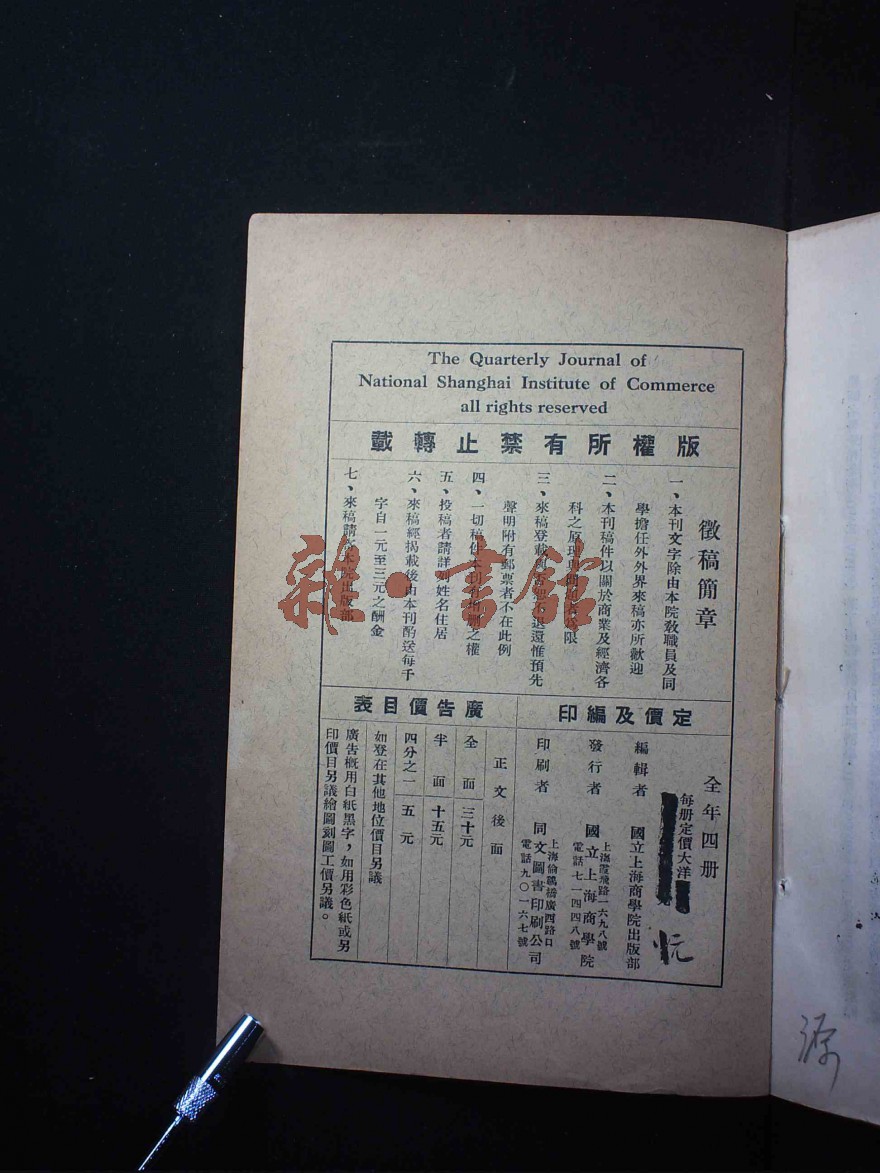 The Quarterly Journal of
National Shanghai Institute of Commerce
all rights reserved
版權所有禁止轉載
徵稿簡章
一、本刊文字除由本院教職員及同
學擔任外外界來稿亦所歡迎
二、本刊稿件以關於商業及經濟各
科之原理與問題者為限
三、來稿登載與否恕不退還惟預先
聲明附有郵票者不在此例
四、一切稿件本刊有增刪之權
五、投稿者請詳列姓名住居
六、來稿經揭載後由本刊酌送每千
字自一元至三元之酬金
七、來稿請寄本院出版部
定價及編印
全年四册
每册定價大洋
元
編輯者 國立上海商學院出版部
發行者 國立上海商學院
上海霞飛路一六九八號
電話七一四四八號
印刷者 同文圖書印刷公司
上海偷鷄橋廣西路口
電話九〇一六七號
廣告價目表
正文後面
全面 三十元
半面 十五元
四分之一 五元
如登在其他地位價目另議
廣告概用白紙黑字，如用彩色紙或另
印價目另議繪圖刻圖工價另議。
雜·書館
源